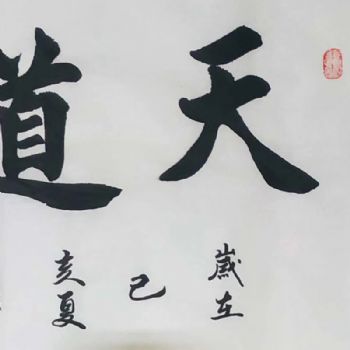 天道
歲在
己
亥夏